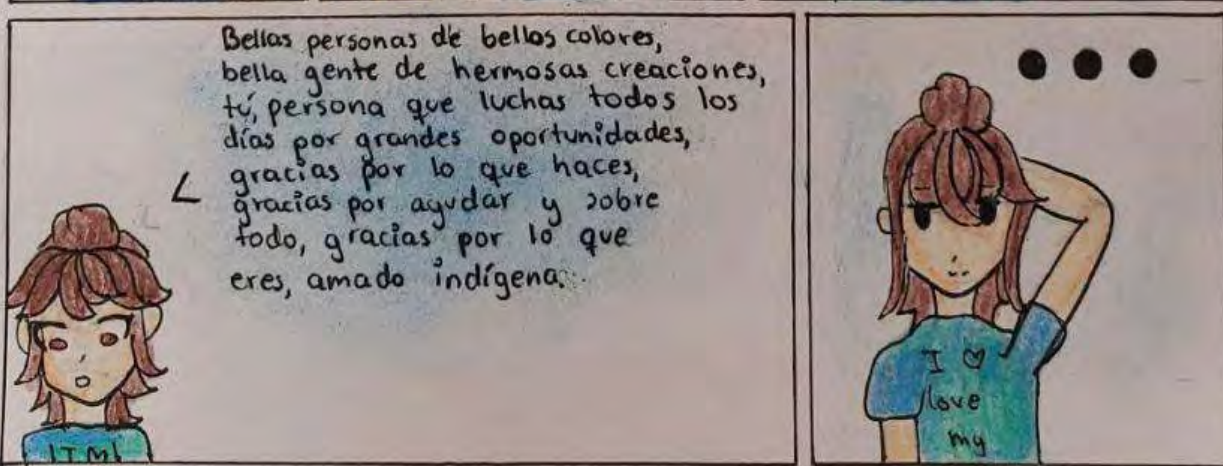 Bellas personas de bellos colores,
bella gente de hermosas creaciones,
tú, persona que luchas todos los
días por grandes oportunidades,
gracias por lo que haces,
gracias por ayudar y sobre
todo, gracias por lo que
eres, amado indígena.
I ♡
love
my